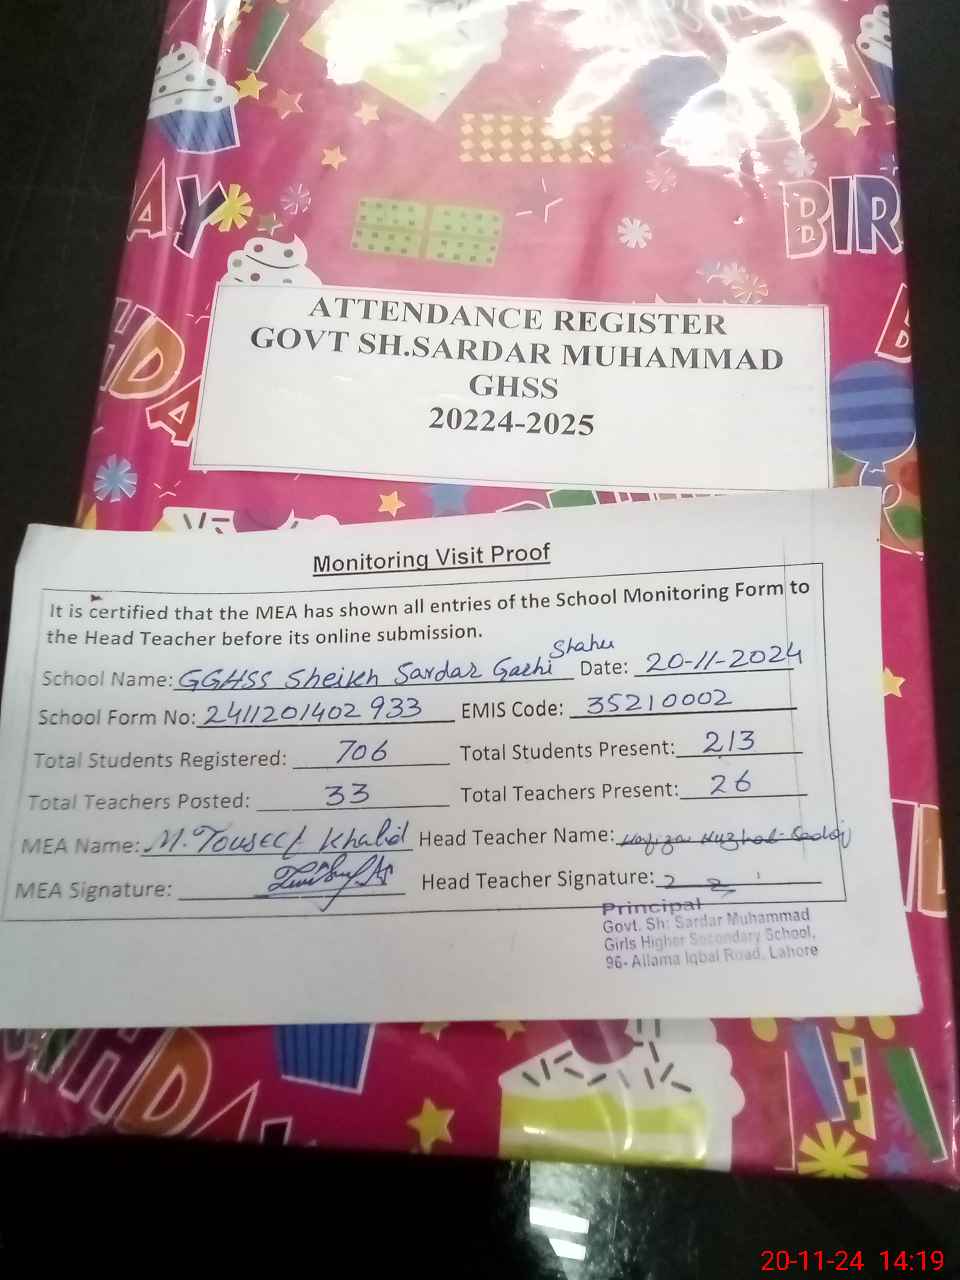 AY
BIR
HDA
B
ATTENDANCE REGISTER
GOVT SH.SARDAR MUHAMMAD
GHSS
20224-2025
Monitoring Visit Proof
It is certified that the MEA has shown all entries of the School Monitoring Form to
the Head Teacher before its online submission.
School Name: GGHSS Sheikh Sardar Garhi Shahu Date: 20-11-2024
School Form No: 2411201402933 EMIS Code: 35210002
Total Students Registered: 706 Total Students Present: 213
Total Teachers Posted: 33 Total Teachers Present: 26
MEA Name: M. Touseef Khalid Head Teacher Name:
MEA Signature: Head Teacher Signature:
Principal
Govt. Sh: Sardar Muhammad
Girls Higher Secondary School,
96- Allama Iqbal Road, Lahore
HDA
20-11-24 14:19